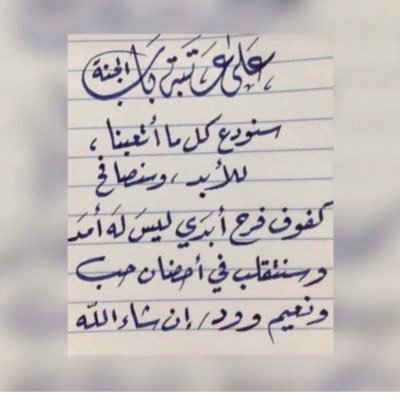 على عَتَبَتي بَابِ الجنة
سنودع كل ما أتعبنا ،
للأبد ، وسنصافح
كفوف فرح أبَدَي ليسَ لَهَ أمَد
وسنتقلب في أحضان حب
ونعيم وود / إن شاء الله